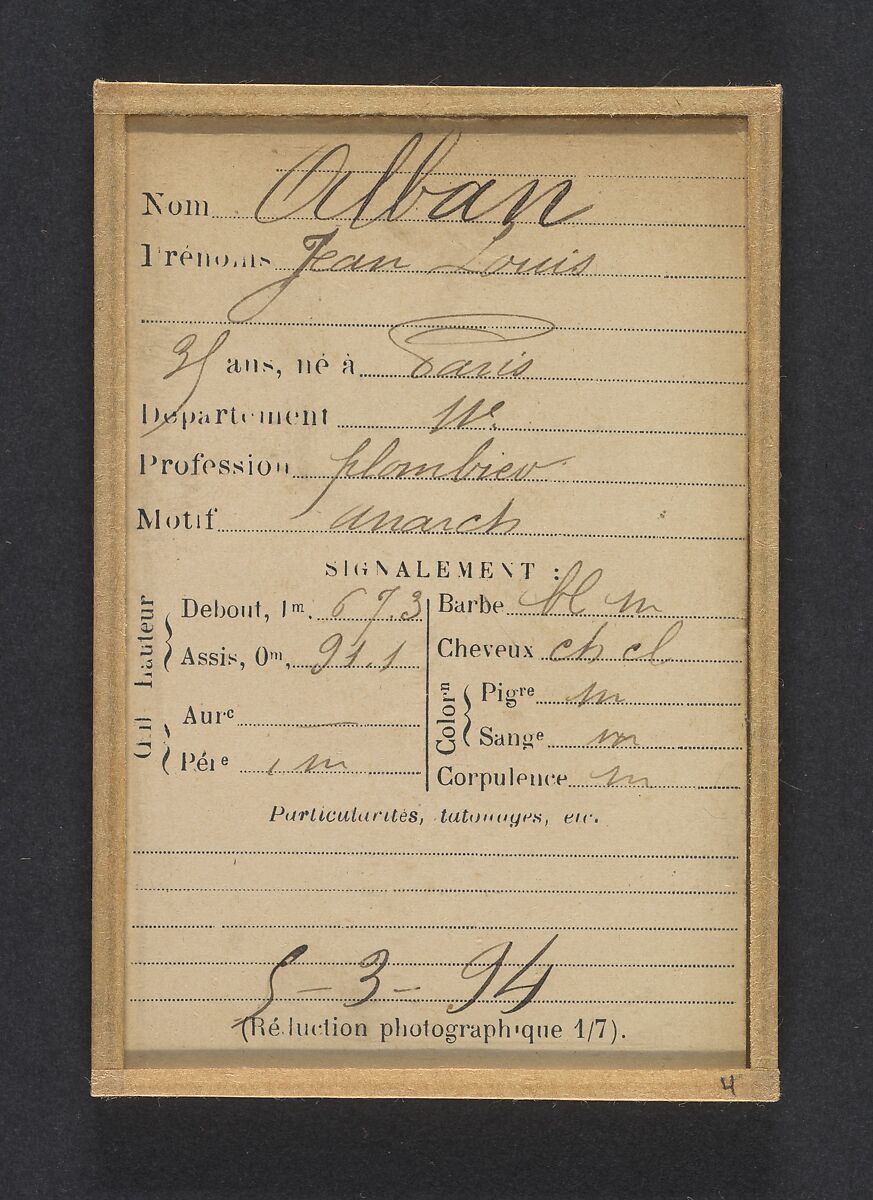 Nom Alban
Prénoms Jean Louis
35 ans, né à Paris
Département
Profession plombier
Motif anarch
SIGNALEMENT :
Œil hauteur
Debout, 1m. 67.3
Assis, 0m, 91.1
Aurᵉ —
Pérᵉ , m
Barbe bl m
Cheveux ch cl
Colorⁿ
Pigʳᵉ m
Sangᵉ
Corpulence m
Particularités, tatouages, etc.
5-3-94
(Réduction photographique 1/7).
4